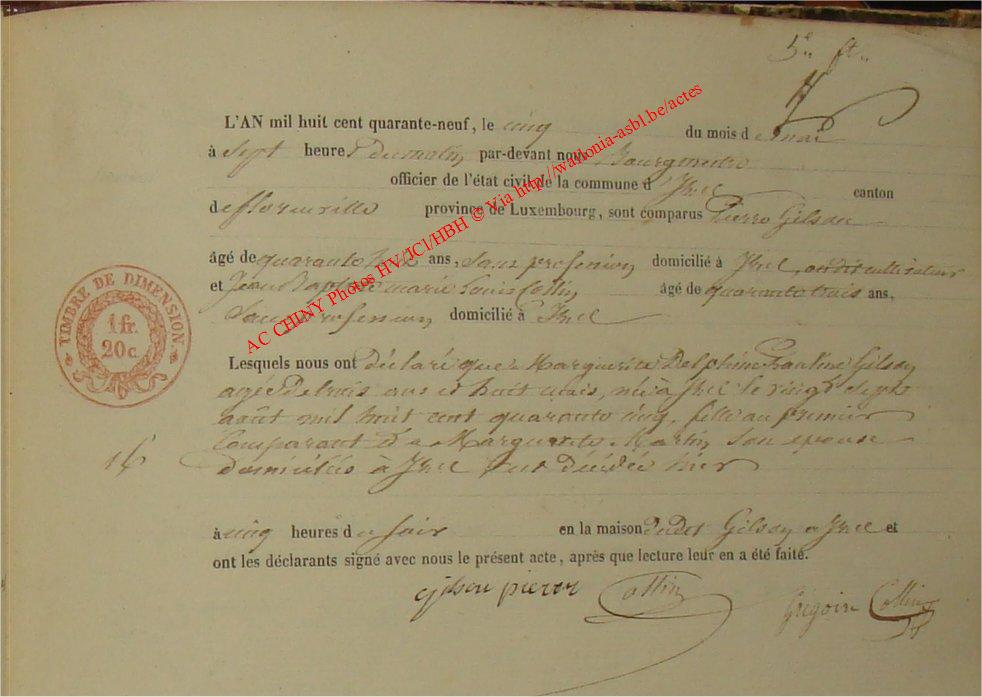 5e ft.
L'AN mil huit cent quarante-neuf, le cinq du mois de mai
à sept heures du matin, par-devant nous Bourgmestre
officier de l'état civil de la commune d'Izel canton
de florenville province de Luxembourg, sont comparus Pierre Gilson
âgé de quarante ans, sans profession domicilié à Izel, cultivateur
et Jean Baptiste marie Louis Collin âgé de quarante trois ans,
Sans profession domicilié à Izel
TIMBRE DE DIMENSION
1 fr.
20 c.
Lesquels nous ont déclaré que Marguerite Delphine Pauline Gilson
agée de trois ans et huit mois, née à Izel le vingt sept
août mil huit cent quarante cinq, fille au premier
Comparant et a Marguerite Martin son epouse
domiciliés à Izel est décédée hier
16
à cinq heures du soir en la maison dudit Gilson a Izel et
ont les déclarants signé avec nous le présent acte, après que lecture leur en a été faite.
gilson pierre Collin
Grégoire Collin
AC CHINY Photos HV/JCl/HBH © Via http://wallonia-asbl.be/actes